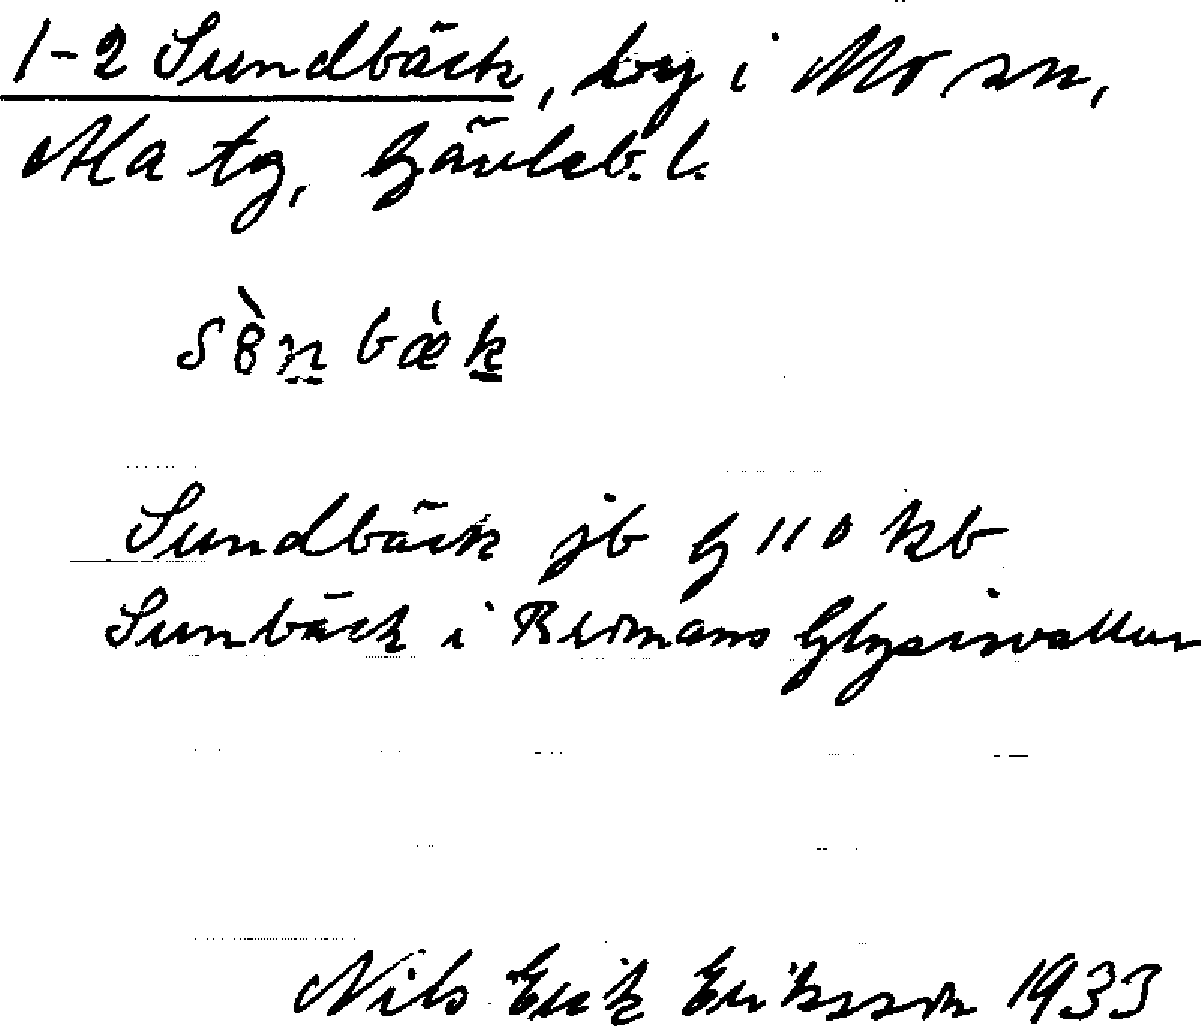 1-2 Sundbäck, by i Mo sn,
Ala tg, Gävleb. l.
Sundbäck jb G 110 kb
Sunbäck i Redmans Glysisvallur
Nils Erik Eriksson 1933